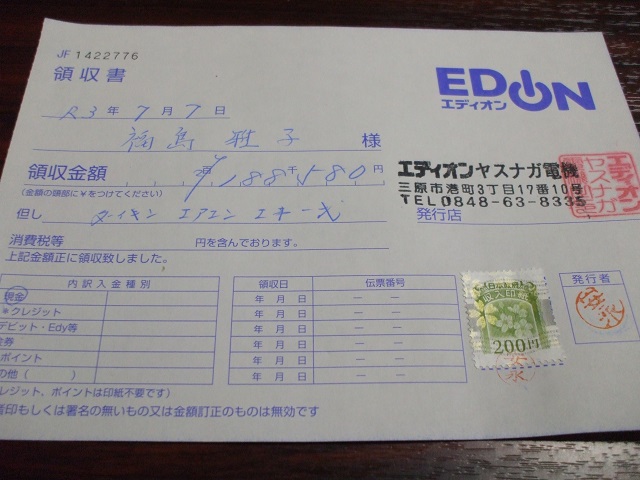 JF 1422776
領収書
EDION
エディオン
R3年7月7日
福島 雅子 様
領収金額 ¥188千580円
(金額の頭部に¥をつけてください)
エディオンヤスナガ電機
三原市港町3丁目17番10号
TEL0848-63-8335
発行店
エディオン
ヤスナガ
但し ダイキン エアコン 工事一式
消費税等 円を含んでおります。
上記金額正に領収致しました。
内訳入金種別
現金
*クレジット
デビット・Edy等
金券
ポイント
の他( )
レジット、ポイントは印紙不要です)
者印もしくは署名の無いもの又は金額訂正のものは無効です
領収日 伝票番号
年 月 日 — —
年 月 日 — —
年 月 日 — —
年 月 日 — —
年 月 日 — —
年 月 日 — —
日本政府
収入印紙
200円
発行者